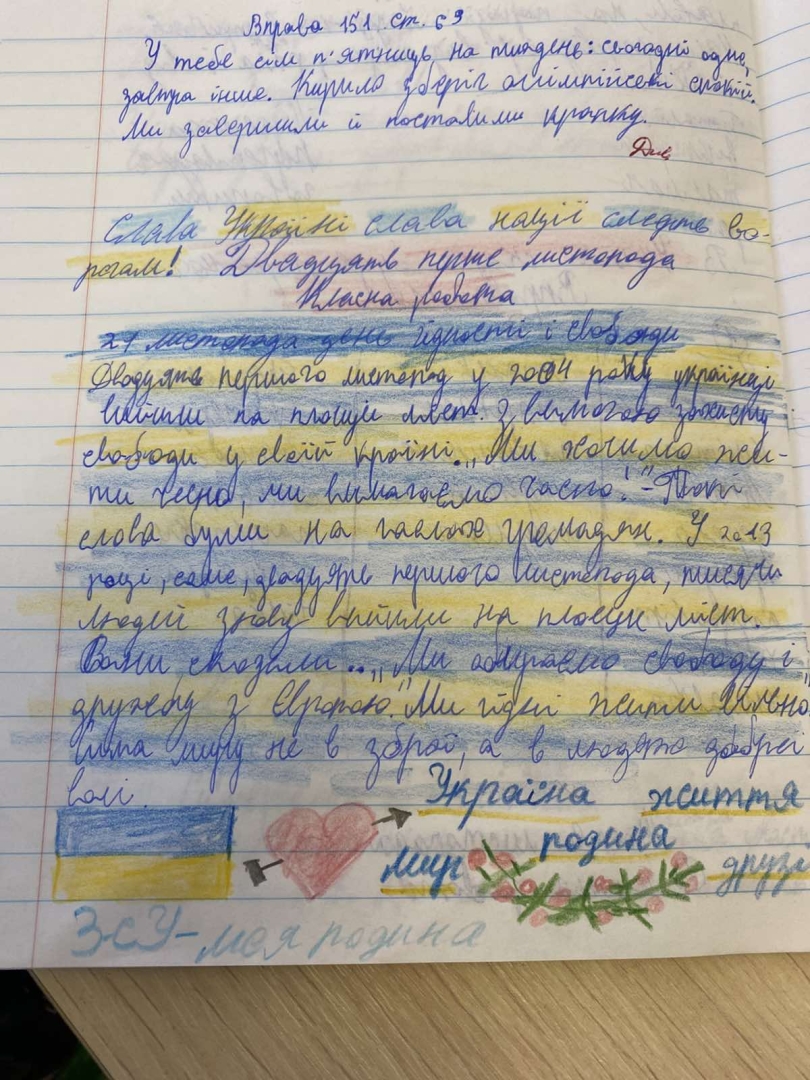 Вправа 151 ст. 69
У тебе сім п'ятниць на тиждень: сьогодні одне,
завтра інше. Кирило зберіг олімпійські спокій.
Ми завершили й поставили крапку.
Слава Україні слава нації смерть во-
рогам! Двадцять перше листопада
Класна робота
21 листопада день гідності і свободи
Двадцять першого листопад у 2004 року українці
вийшли на площі міст. з вимогою захисту
свободи у своїй країні. „Ми хочимо жи-
ти чесно, ми вимагаємо часно!" - Такі
слова були на гаслах громадян. У 2013
році, саме, двадцять першого листопада, тисячи
людей знову вийшли на площі міст.
Вони сказали.. „Ми обираємо свободу і
дружбу з Європою." Ми гідні жити вільно
сила миру не в зброї, а в людях добрей
волі.
Україна життя
мир родина друзі
ЗСУ - моя родина